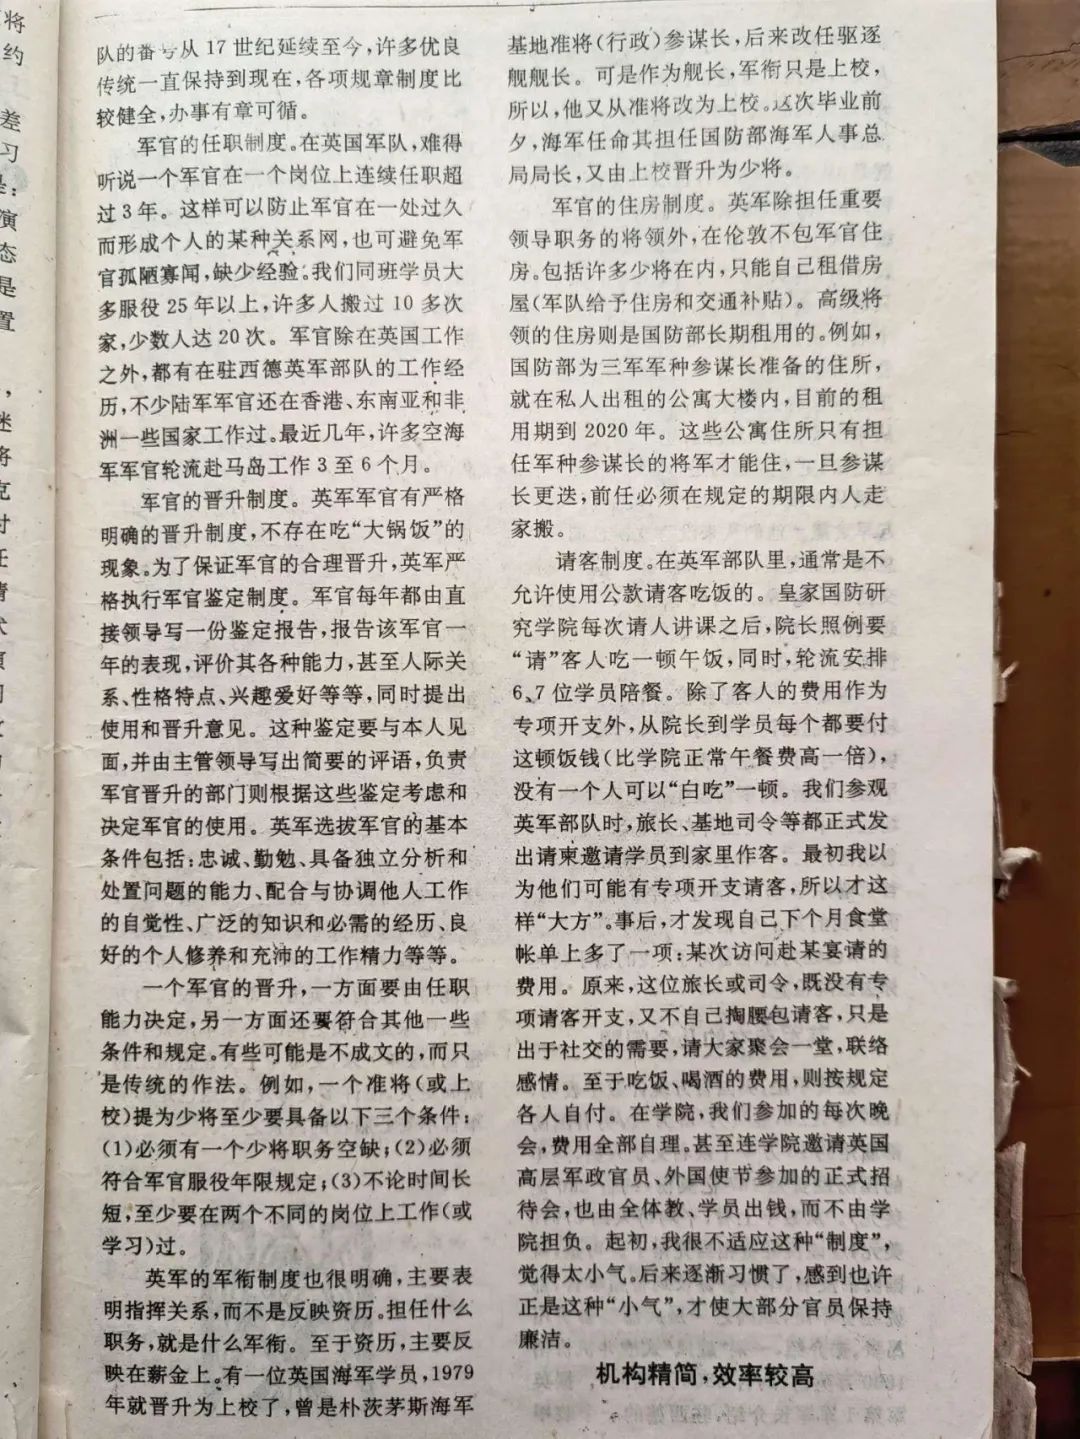 将
约
差
习
演
态
是
置
队的番号从17世纪延续至今,许多优良
传统一直保持到现在,各项规章制度比
较健全,办事有章可循。
军官的任职制度。在英国军队,难得
听说一个军官在一个岗位上连续任职超
过3年。这样可以防止军官在一处过久
而形成个人的某种关系网,也可避免军
官孤陋寡闻,缺少经验。我们同班学员大
多服役25年以上,许多人搬过10多次
家,少数人达20次。军官除在英国工作
之外,都有在驻西德英军部队的工作经
历,不少陆军军官还在香港、东南亚和非
洲一些国家工作过。最近几年,许多空海
军军官轮流赴马岛工作3至6个月。
军官的晋升制度。英军军官有严格
明确的晋升制度,不存在吃“大锅饭”的
现象。为了保证军官的合理晋升,英军严
格执行军官鉴定制度。军官每年都由直
接领导写一份鉴定报告,报告该军官一
年的表现,评价其各种能力,甚至人际关
系、性格特点、兴趣爱好等等,同时提出
使用和晋升意见。这种鉴定要与本人见
面,并由主管领导写出简要的评语,负责
军官晋升的部门则根据这些鉴定考虑和
决定军官的使用。英军选拔军官的基本
条件包括:忠诚、勤勉、具备独立分析和
处置问题的能力、配合与协调他人工作
的自觉性、广泛的知识和必需的经历、良
好的个人修养和充沛的工作精力等等。
一个军官的晋升,一方面要由任职
能力决定,另一方面还要符合其他一些
条件和规定。有些可能是不成文的,而只
是传统的作法。例如,一个准将(或上
校)提为少将至少要具备以下三个条件:
(1)必须有一个少将职务空缺;(2)必须
符合军官服役年限规定;(3)不论时间长
短,至少要在两个不同的岗位上工作(或
学习)过。
英军的军衔制度也很明确,主要表
明指挥关系,而不是反映资历。担任什么
职务,就是什么军衔。至于资历,主要反
映在薪金上。有一位英国海军学员,1979
年就晋升为上校了,曾是朴茨茅斯海军
基地准将(行政)参谋长,后来改任驱逐
舰舰长。可是作为舰长,军衔只是上校,
所以,他又从准将改为上校。这次毕业前
夕,海军任命其担任国防部海军人事总
局局长,又由上校晋升为少将。
军官的住房制度。英军除担任重要
领导职务的将领外,在伦敦不包军官住
房。包括许多少将在内,只能自己租借房
屋(军队给予住房和交通补贴)。高级将
领的住房则是国防部长期租用的。例如,
国防部为三军军种参谋长准备的住所,
就在私人出租的公寓大楼内,目前的租
用期到2020年。这些公寓住所只有担
任军种参谋长的将军才能住,一旦参谋
长更迭,前任必须在规定的期限内人走
家搬。
请客制度。在英军部队里,通常是不
允许使用公款请客吃饭的。皇家国防研
究学院每次请人讲课之后,院长照例要
“请”客人吃一顿午饭,同时,轮流安排
6、7位学员陪餐。除了客人的费用作为
专项开支外,从院长到学员每个都要付
这顿饭钱(比学院正常午餐费高一倍),
没有一个人可以“白吃”一顿。我们参观
英军部队时,旅长、基地司令等都正式发
出请柬邀请学员到家里作客。最初我以
为他们可能有专项开支请客,所以才这
样“大方”。事后,才发现自己下个月食堂
帐单上多了一项:某次访问赴某宴请的
费用。原来,这位旅长或司令,既没有专
项请客开支,又不自己掏腰包请客,只是
出于社交的需要,请大家聚会一堂,联络
感情。至于吃饭、喝酒的费用,则按规定
各人自付。在学院,我们参加的每次晚
会,费用全部自理。甚至连学院邀请英国
高层军政官员、外国使节参加的正式招
待会,也由全体教、学员出钱,而不由学
院担负。起初,我很不适应这种“制度”,
觉得太小气。后来逐渐习惯了,感到也许
正是这种“小气”,才使大部分官员保持
廉洁。
机构精简,效率较高